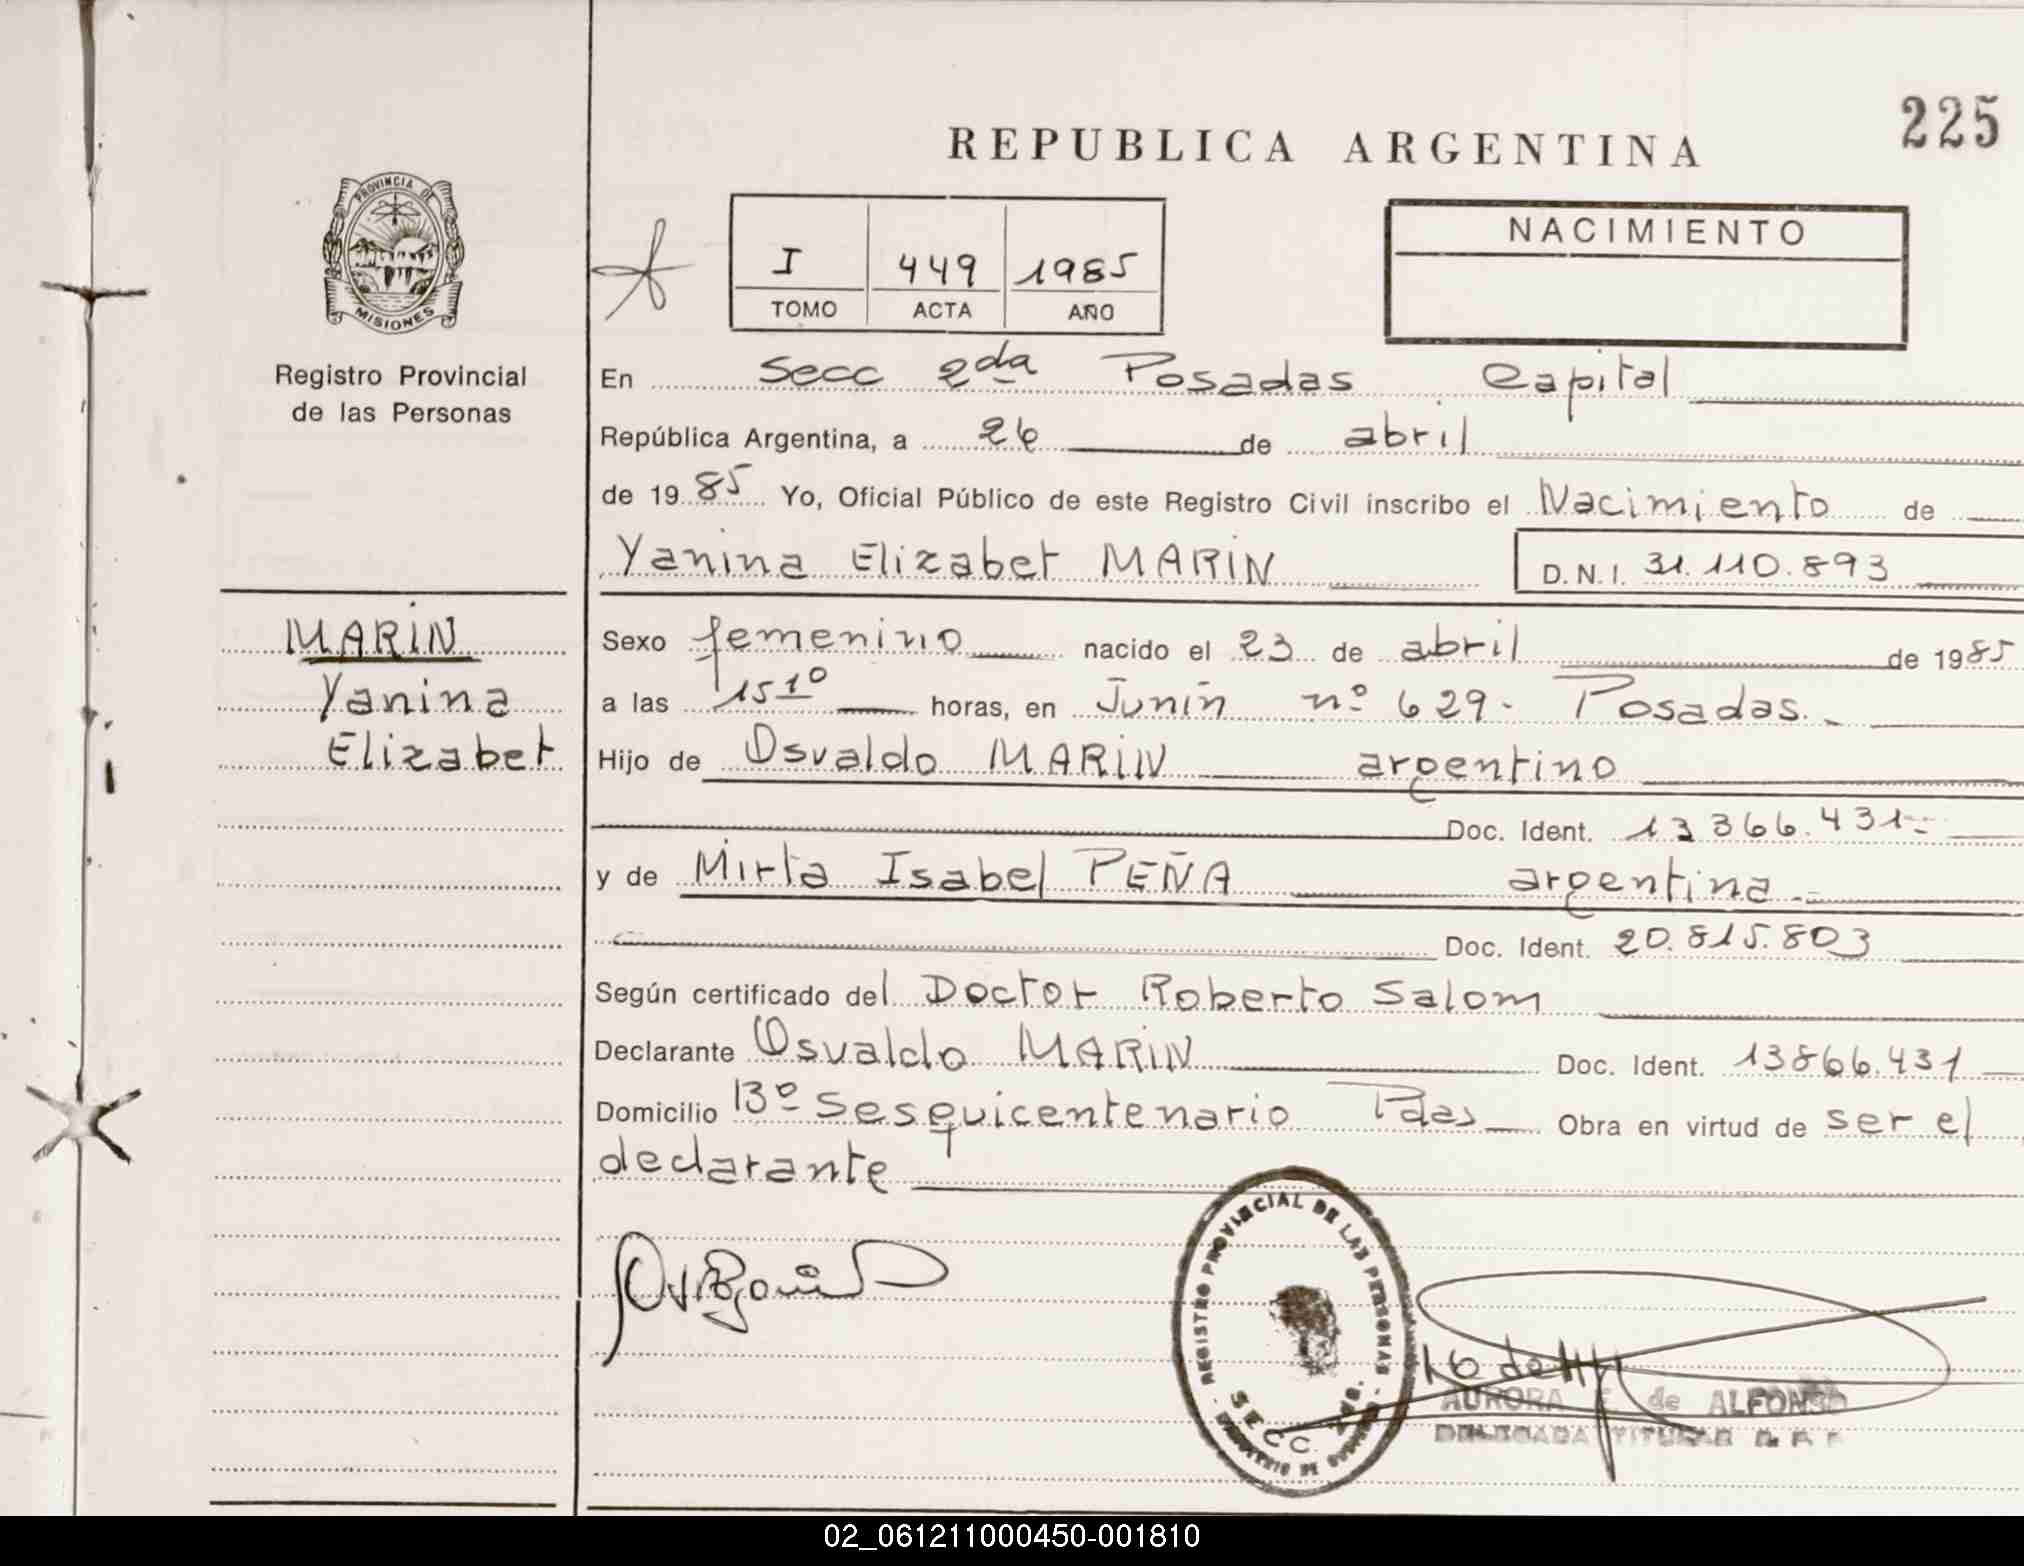 225
REPUBLICA ARGENTINA
PROVINCIA DE
MISIONES
Registro Provincial
de las Personas
I 449 1985
TOMO ACTA AÑO
NACIMIENTO
En Secc 2da Posadas Capital
República Argentina, a 26 de abril
de 1985 Yo, Oficial Público de este Registro Civil inscribo el Nacimiento de
Yanina Elizabet MARIN D.N.I. 31.110.893
MARIN
Yanina
Elizabet
Sexo femenino nacido el 23 de abril de 1985
a las 15 10 horas, en Junín nº 629. Posadas.
Hijo de Osvaldo MARIN argentino
Doc. Ident. 13 366.431
y de Mirta Isabel PEÑA argentina
Doc. Ident. 20.815.803
Según certificado del Doctor Roberto Salom
Declarante Osvaldo MARIN Doc. Ident. 13866.431
Domicilio Bº Sesquicentenario Pdas Obra en virtud de ser el
declarante
REGISTRO PROVINCIAL DE LAS PERSONAS
SECC.
MINISTERIO DE GOBIERNO
AURORA de ALFONSO
DELEGADA TITULAR
02_061211000450-001810